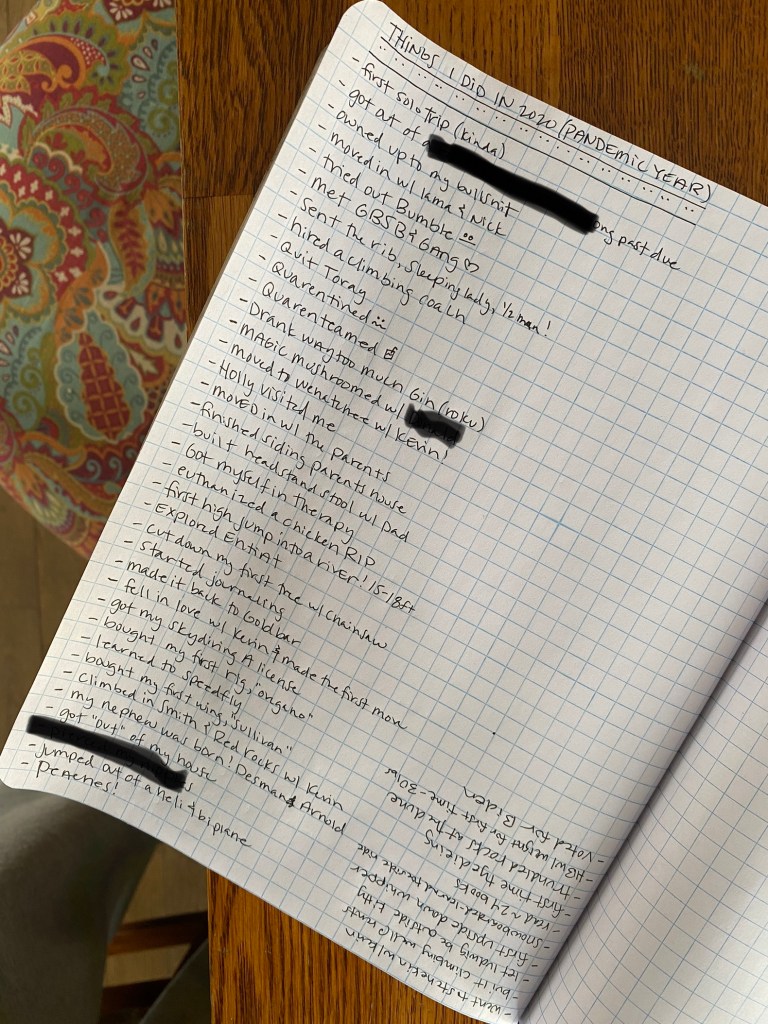 THINGS I DID IN 2020 (PANDEMIC YEAR)
- first solo trip (kinda)
- got out of ong past due
- owned up to my bullshit
- moved in w/ Kama & Nick
- tried out Bumble
- met GBSB & GANG ♡
- sent the rib, sleeping lady, 1/2 man!
- hired a climbing coach
- Quit Toray
- Quarentined
- Quarenteamed
- Drank way too much Gin (roku)
- MAGIC mushroomed w/
- moved to wenatchee w/ KEVIN!
- Holly visited me
- MOVED in w/ the parents
- finished siding parents house
- built headstand stool w/ Dad
- Got myself in therapy
- euthanized a chicken RIP
- first high jump into a river! 15-18ft
- EXPlored ENtiAT
- cut down my first tree w/ chainsaw
- started journaling
- made it back to Goldbar
- fell in love w/ Kevin & made the first move
- got my skydiving A license
- bought my first rig, "oregano"
- learned to speedfly
- bought my first wing, "Sullivan"
- climbed in Smith & Red rocks w/ Kevin
- my nephew was born! Desmond Arnold
- got "out" of my house
s
- jumped out of a heli & biplane
- PEACHES!
- went to stehekin w/ kevin
- built climbing wall @ rents
- let ludwig be outside kitty
- first upside down whipper
- snowboarded
- read ~ 24 books
- first time tyedieing
- trundled rocks at the dune
- HBW weight for first time - 30lbs
- voted for Biden